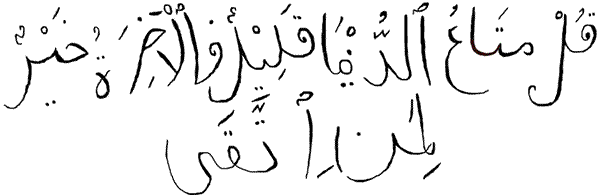 قُلْ مَتَاعُ ٱلدُّنْيَا قَلِيلٌ وَٱلْأَخِرَةُ خَيْرٌ
لِمَنِ ٱتَّقَى